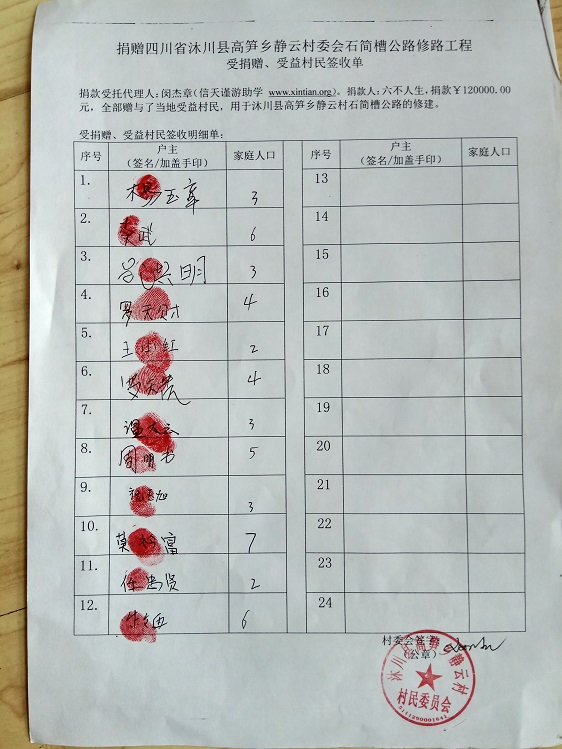 捐赠四川省沐川县高笋乡静云村委会石简槽公路修路工程
受捐赠、受益村民签收单
捐款受托代理人：闵杰章（信天谨游助学 www.xintian.org）。捐款人：六不人生，捐款￥120000.00
元，全部赠与了当地受益村民，用于沐川县高笋乡静云村石简槽公路的修建。
受捐赠、受益村民签收明细单：
序号 户主（签名/加盖手印） 家庭人口 序号 户主（签名/加盖手印） 家庭人口
1. 杨玉章 3 13
2. 武 6 14
3. 吕洪明 3 15
4. 罗天财 4 16
5. 王小红 2 17
6. 4 18
7. 3 19
8. 周明书 5 20
9. 3 21
10. 富 7 22
11. 任 贤 2 23
12. 朱 6 24
村委会签字
（公章）
沐川县高笋乡静云村
村民委员会